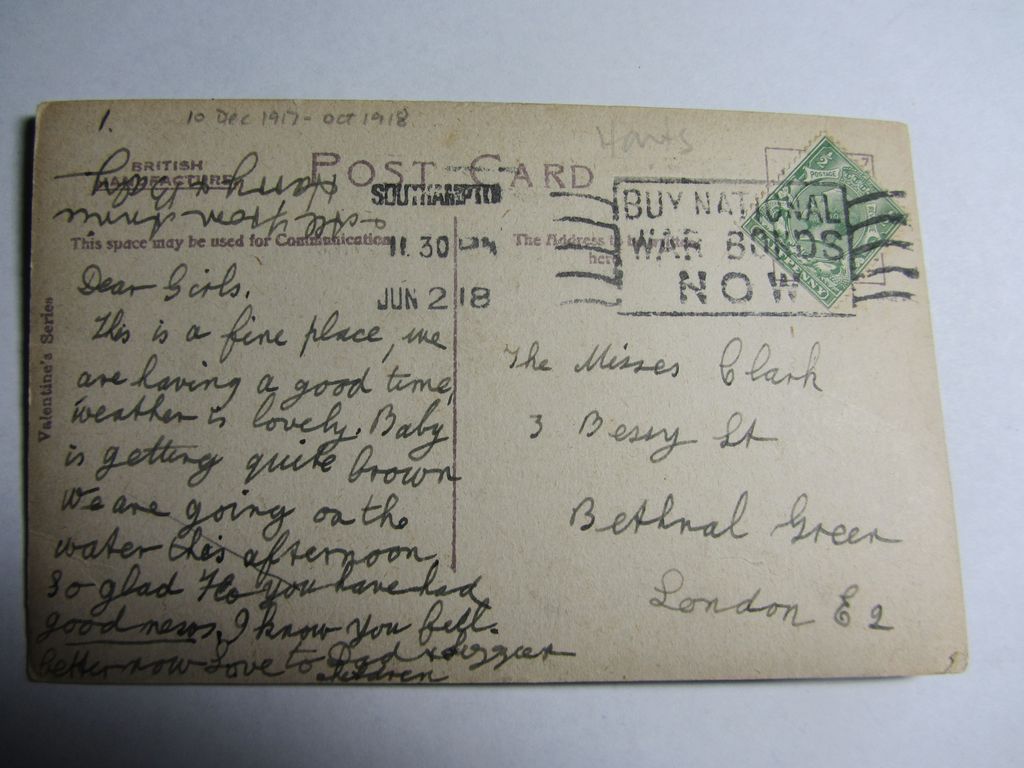 1.
10 Dec 1917 - Oct 1918
Hants
BRITISH
MANUFACTURE
POST CARD
SOUTHAMPTON
11.30 AM
JUN 2 18
BUY NATIONAL
WAR BONDS
NOW
POSTAGE
PENNY
This space may be used for Communication
The Address to be written
here
Valentine's Series
Dear Girls.
This is a fine place, we
are having a good time,
weather is lovely. Baby
is getting quite brown
We are going on the
water this afternoon
So glad Flo you have had
good news, I know you feel
better now Love to Dad
children
Harry & Baby
from
The Misses Clark
3 Bessy St
Bethnal Green
London E 2